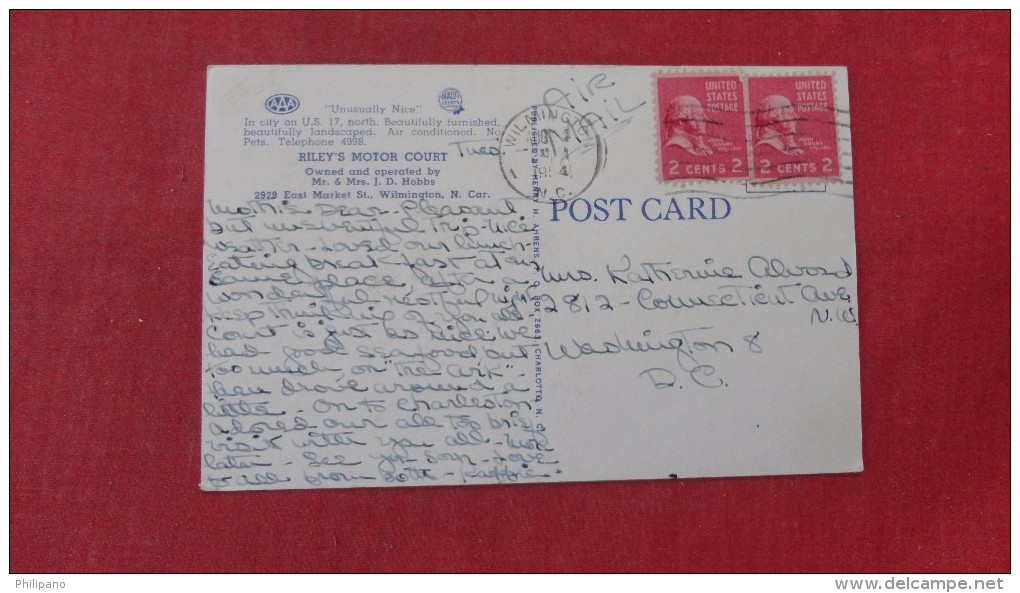 AAA
"Unusually Nice"
In city on U.S. 17, north. Beautifully furnished,
beautifully landscaped. Air conditioned. No
Pets. Telephone 4998.
RILEY'S MOTOR COURT
Owned and operated by
Mr. & Mrs. J. D. Hobbs
2929 East Market St., Wilmington, N. Car.
Tues.
Dear - Pleasant
but uneventful trip - Nice
weather - Loved our lunch -
Eating breakfast at our
same place after a
wonderful restful night
Keep thinking of you all
Court is just as nice. We
had good seafood but
too much on "the Ark" -
then drove around a
little - On to Charleston,
adored our all too brief
visit with you all - More
later - See you soon - Love
to all from both -
PUBLISHED BY HENRY H. AHRENS, P. O. BOX 2663, CHARLOTTE, N. C.
WILMINGTON
1954
N.C.
AIR
MAIL
UNITED
STATES
POSTAGE
2 CENTS 2
UNITED
STATES
POSTAGE
JOHN
ADAMS
2 CENTS 2
POST CARD
Mrs. Katherine Alvord
2812 - Connecticut Ave
N.W.
Washington 8
D.C.
Philipano
www.delcampe.net